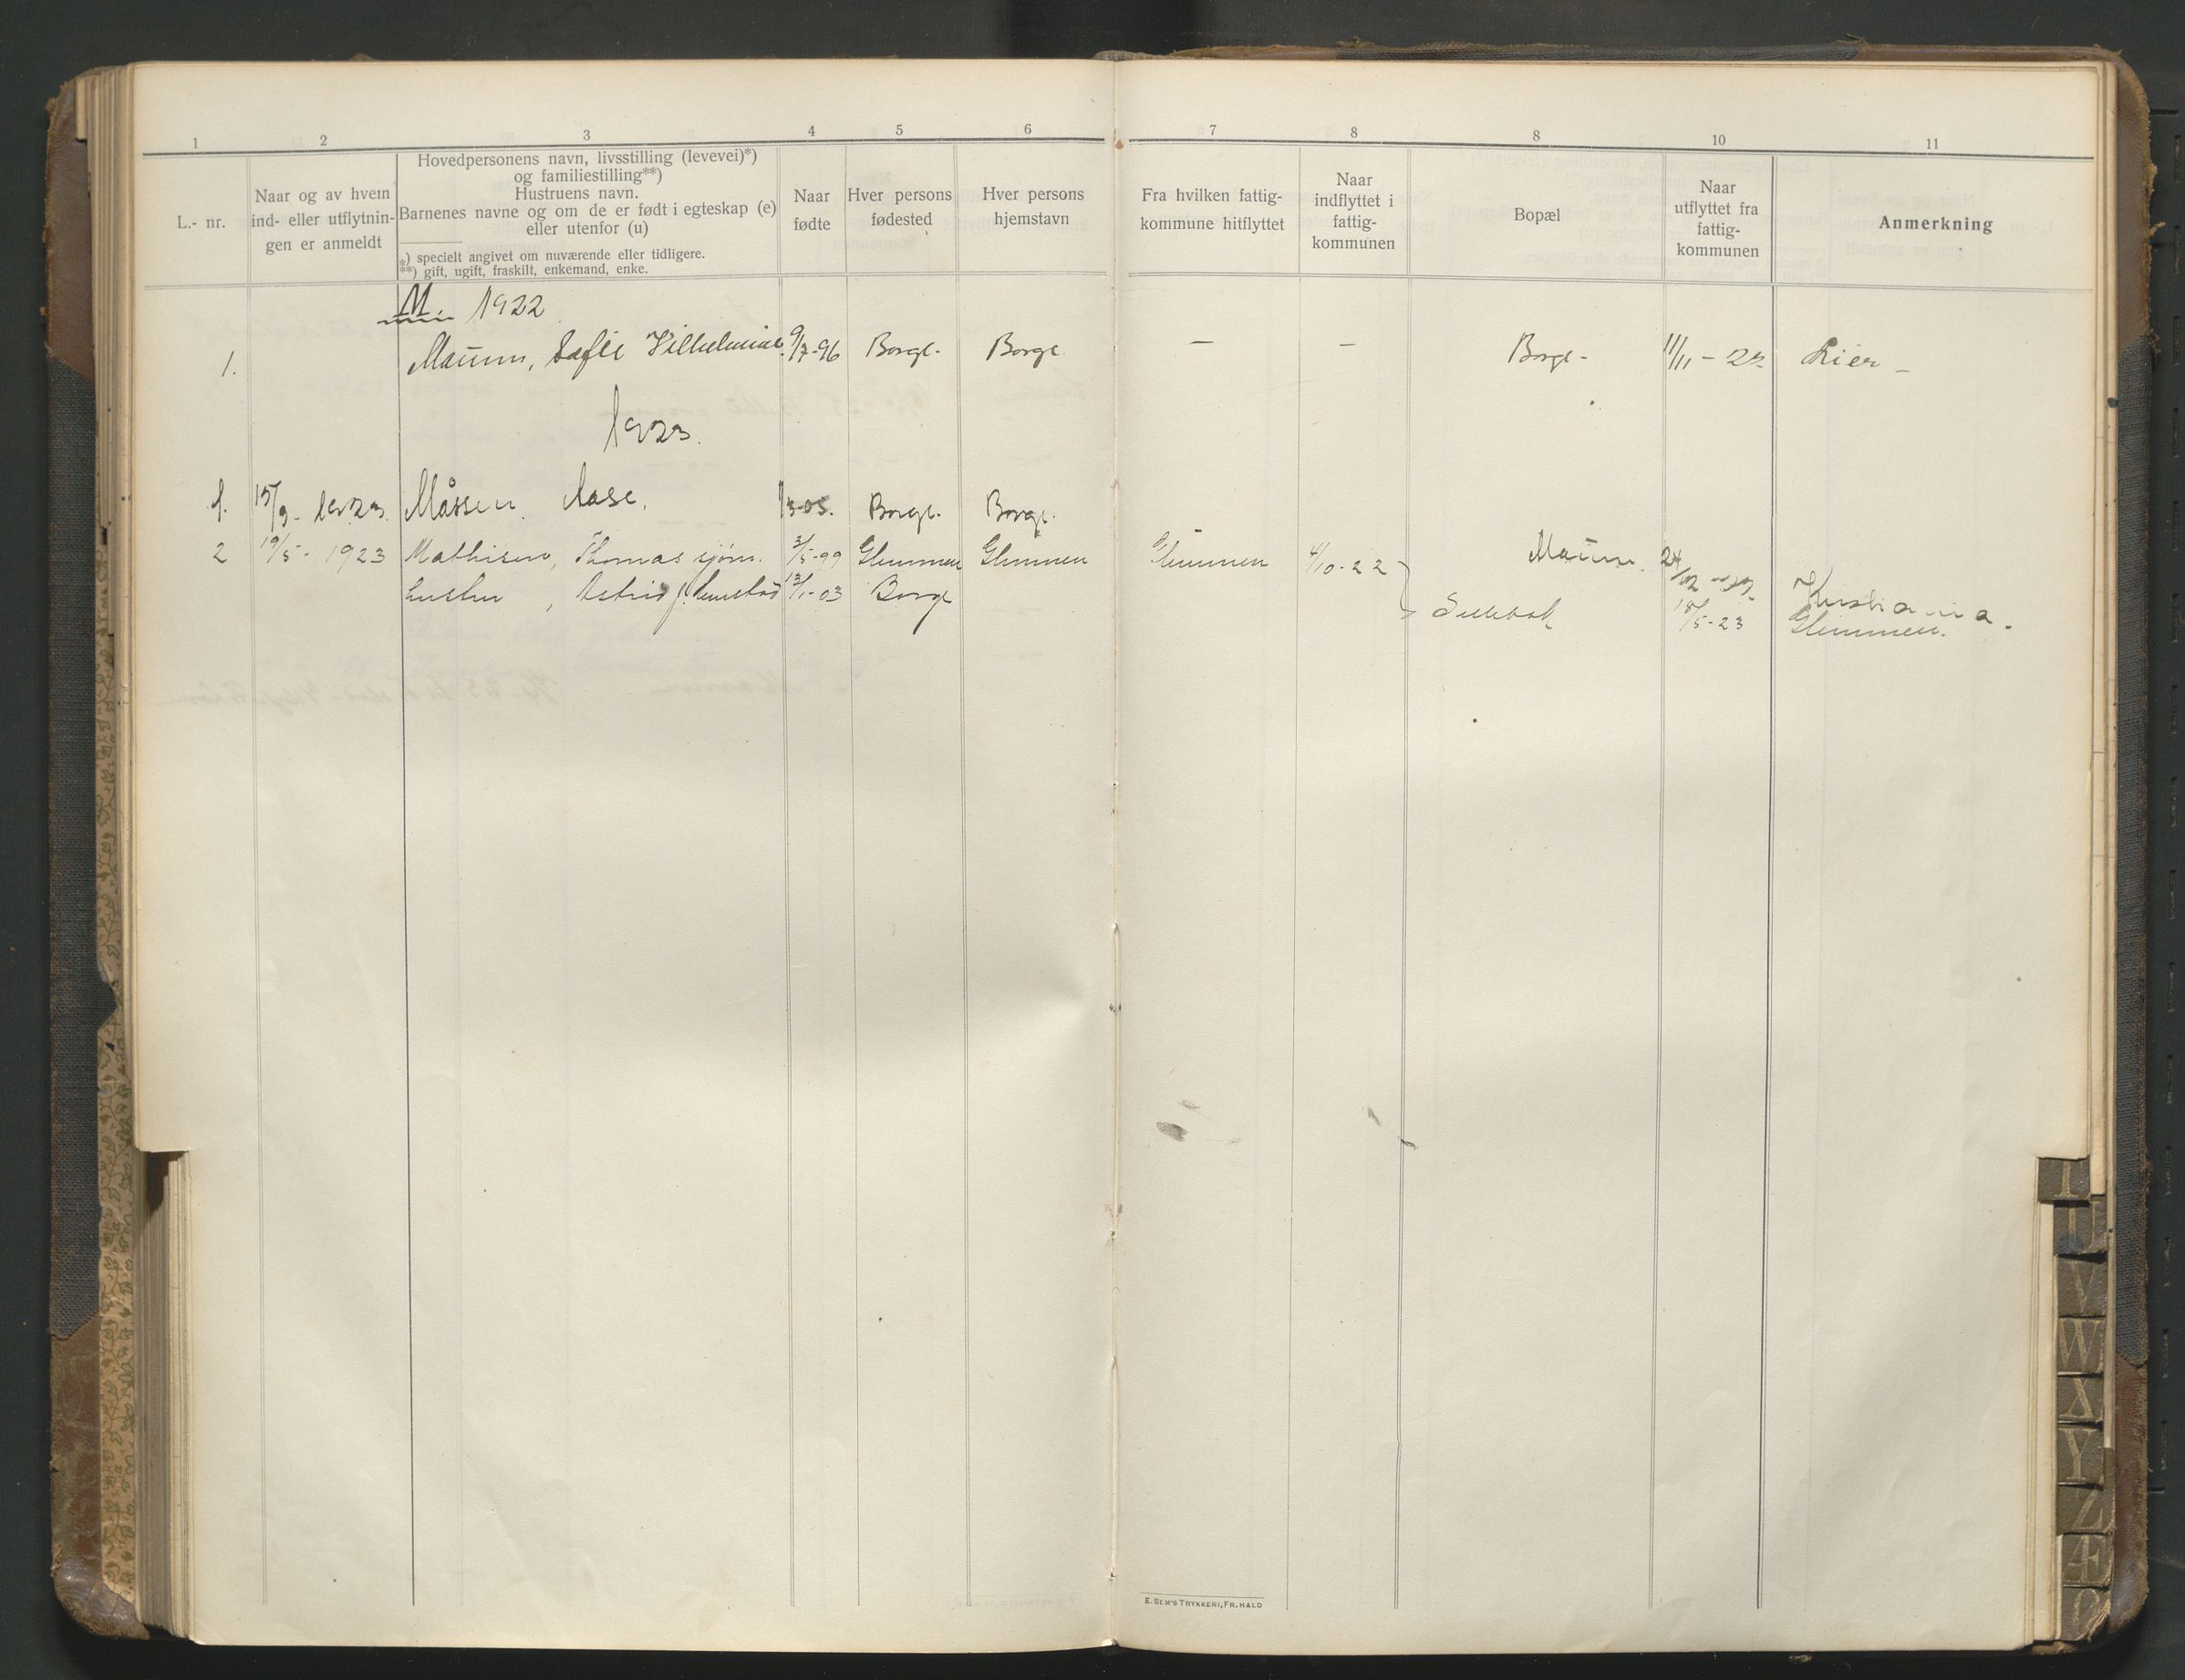 1 2 3 4 5 6 7 8 8 10 11
L.- nr.
Naar og av hvem
ind- eller utflytnin-
gen er anmeldt
Hovedpersonens navn, livsstilling (levevei)*)
og familiestilling**)
Hustruens navn.
Barnenes navne og om de er født i egteskap (e)
eller utenfor (u)
*) specielt angivet om nuværende eller tidligere.
**) gift, ugift, fraskilt, enkemand, enke.
Naar
fødte
Hver persons
fødested
Hver persons
hjemstavn
Fra hvilken fattig-
kommune hitflyttet
Naar
indflyttet i
fattig-
kommunen
Bopæl
Naar
utflyttet fra
fattig-
kommunen
Anmerkning
M. 1922
1. Maum, Sofie Vilhelmine 9/7-96 Borge. Borge. — — Borge - 11/11 - 22 Lier -
1923.
1. 15/3- 1923. Måssen, Aase. Borge. Borge. Maum. Kristiania.
2 19/5- 1923 Mathisen, Thomas sjøm. 3/5-99 Glemmen Glemmen Glemmen 4/10-22
hustru, Astrid f. 13/1-03 Borge Sellebak 18/5-23 Glemmen.
E. SEM'S TRYKKERI, FR.HALD
T
U
V
W
X
Y
Z
Æ
Ø